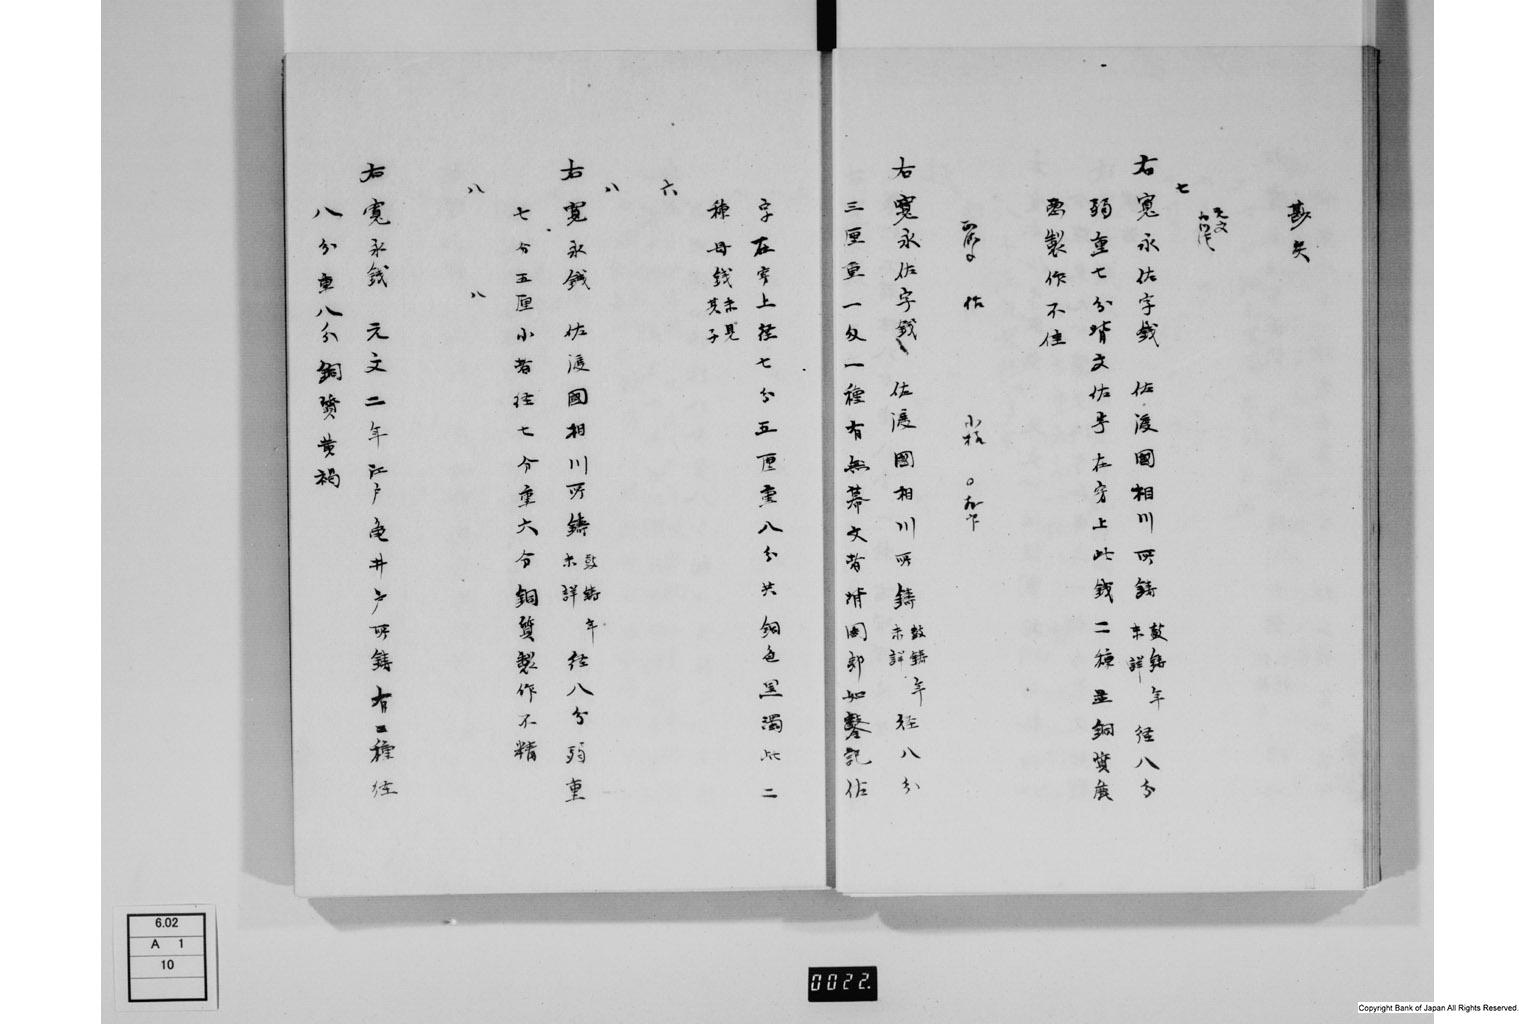 尠矣
七
元文
右寛永佐字銭 佐渡國相川所鋳 鼓鋳年未詳 径八分
弱重七分背文佐字在穿上此銭二種並銅質
悪製作不佳
佐
小
右寛永佐字銭 佐渡國相川所鋳 鼓鋳年未詳 径八分
三厘重一匁一種有無背文者背図郭如鑿記佐
字在穿上径七分五厘重八分共銅色黒濁此二
種母銭未見其子
六
八
右寛永銭 佐渡國相川所鋳 鼓鋳年未詳 径八分弱重
七分五厘小者径七分重六分銅質製作不精
八
八
右寛永銭 元文二年江戸亀井戸所鋳有二種径
八分重八分銅質黄褐
6.02
A 1
10
0022.
Copyright Bank of Japan All Rights Reserved.